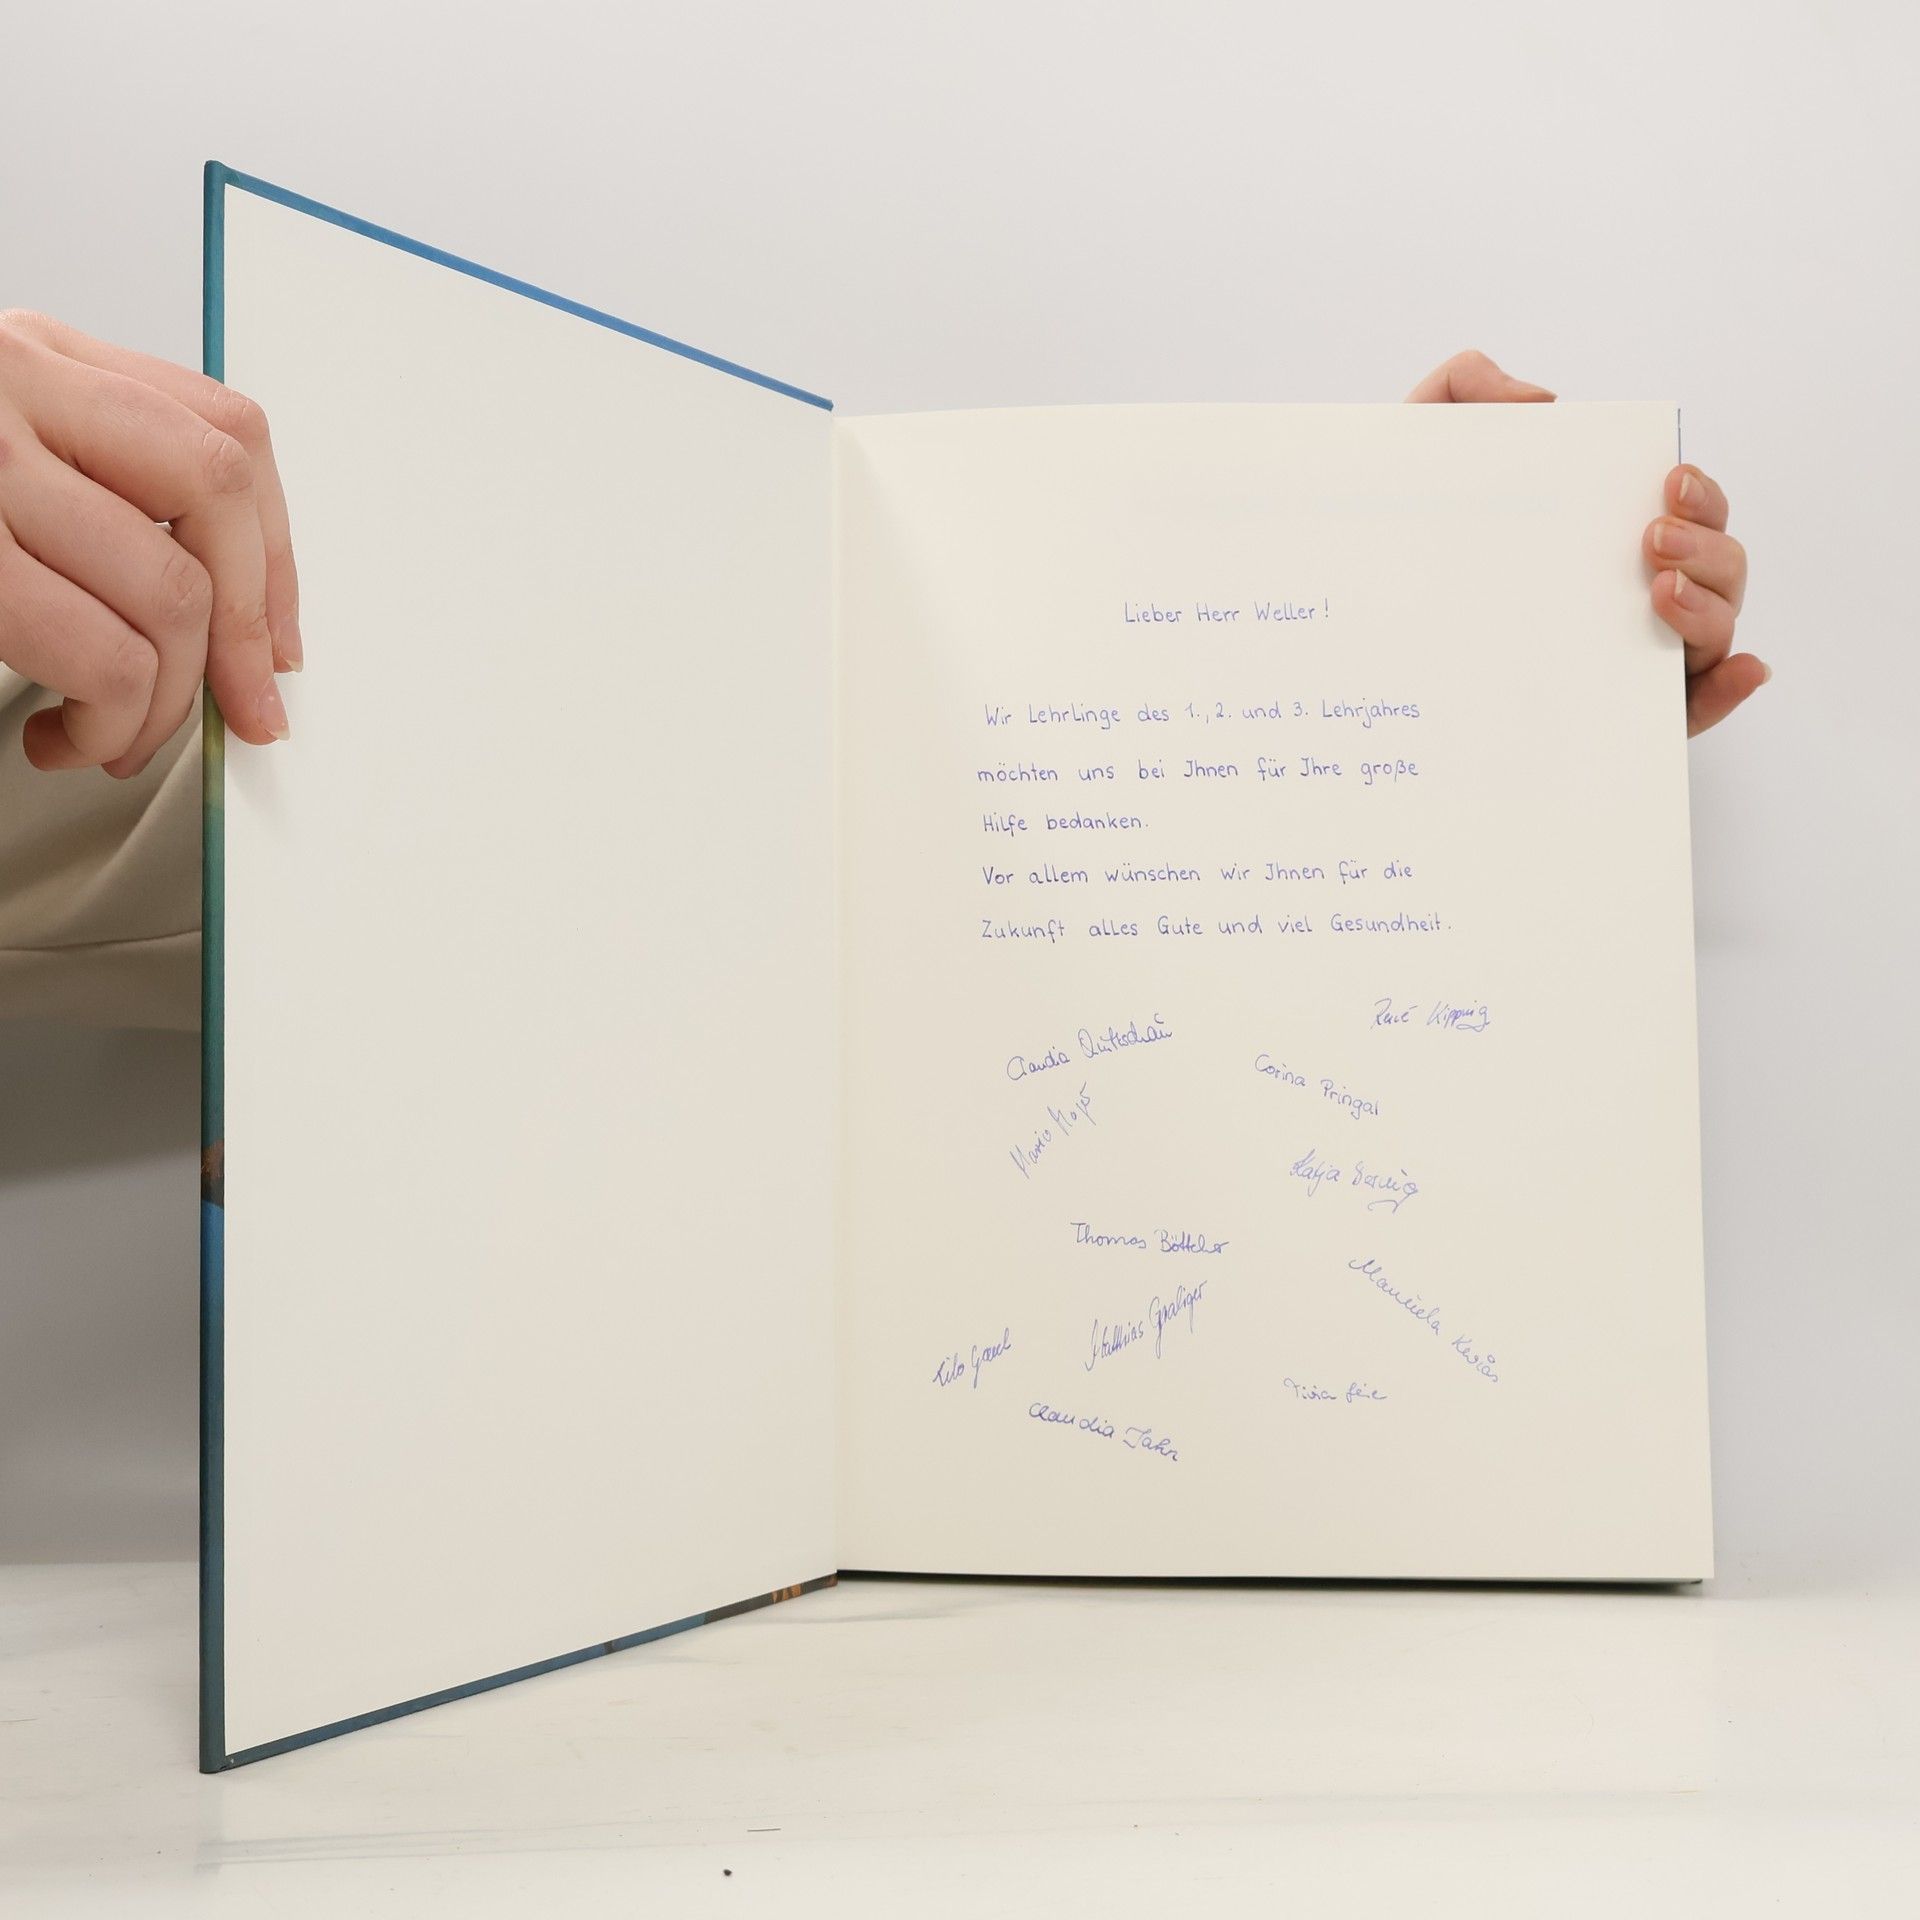 Lieber Herr Weller!
Wir Lehrlinge des 1., 2. und 3. Lehrjahres
möchten uns bei Ihnen für Ihre große
Hilfe bedanken.
Vor allem wünschen wir Ihnen für die
Zukunft alles Gute und viel Gesundheit.
René Kipping
Claudia
Corina Pringal
Mario
Katja
Thomas Böttcher
Manuela
Matthias
Claudia Jahn